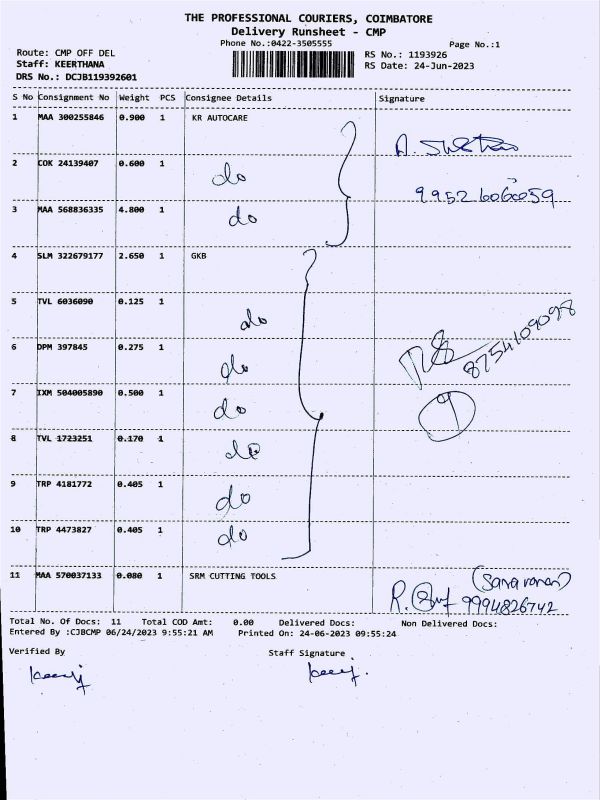 THE PROFESSIONAL COURIERS, COIMBATORE
Delivery Runsheet - CMP
Phone No.:0422-3505555
Page No.:1
Route: CMP OFF DEL
RS No.: 1193926
Staff: KEERTHANA
RS Date: 24-Jun-2023
DRS No.: DCJB119392601
S No Consignment No Weight PCS Consignee Details Signature
1 MAA 300255846 0.900 1 KR AUTOCARE
2 COK 24139407 0.600 1 do
3 MAA 568836335 4.800 1 do
4 SLM 322679177 2.650 1 GKB
5 TVL 6036090 0.125 1 do
6 DPM 397845 0.275 1 do
8754109098
7 IXM 504005890 0.500 1 do
9
8 TVL 1723251 0.170 1 do
9 TRP 4181772 0.405 1 do
10 TRP 4473827 0.405 1 do
11 MAA 570037133 0.080 1 SRM CUTTING TOOLS
9994826742
Total No. Of Docs: 11 Total COD Amt: 0.00 Delivered Docs: Non Delivered Docs:
Entered By :CJBCMP 06/24/2023 9:55:21 AM Printed On: 24-06-2023 09:55:24
Verified By Staff Signature